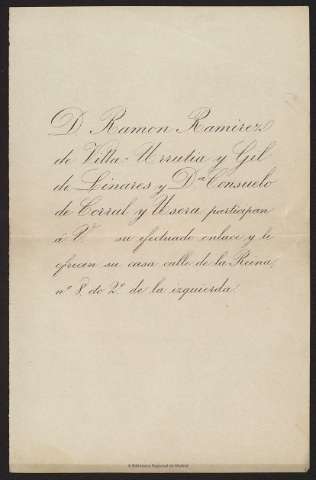 D. Ramon Ramirez
de Villa-Urrutia y Gil
de Linares y Dª Consuelo
de Corral y Usera participan
á V. su efectuado enlace y le
ofrecen su casa calle de la Reina,
nº 8, cto 2º de la izquierda.
© Biblioteca Regional de Madrid